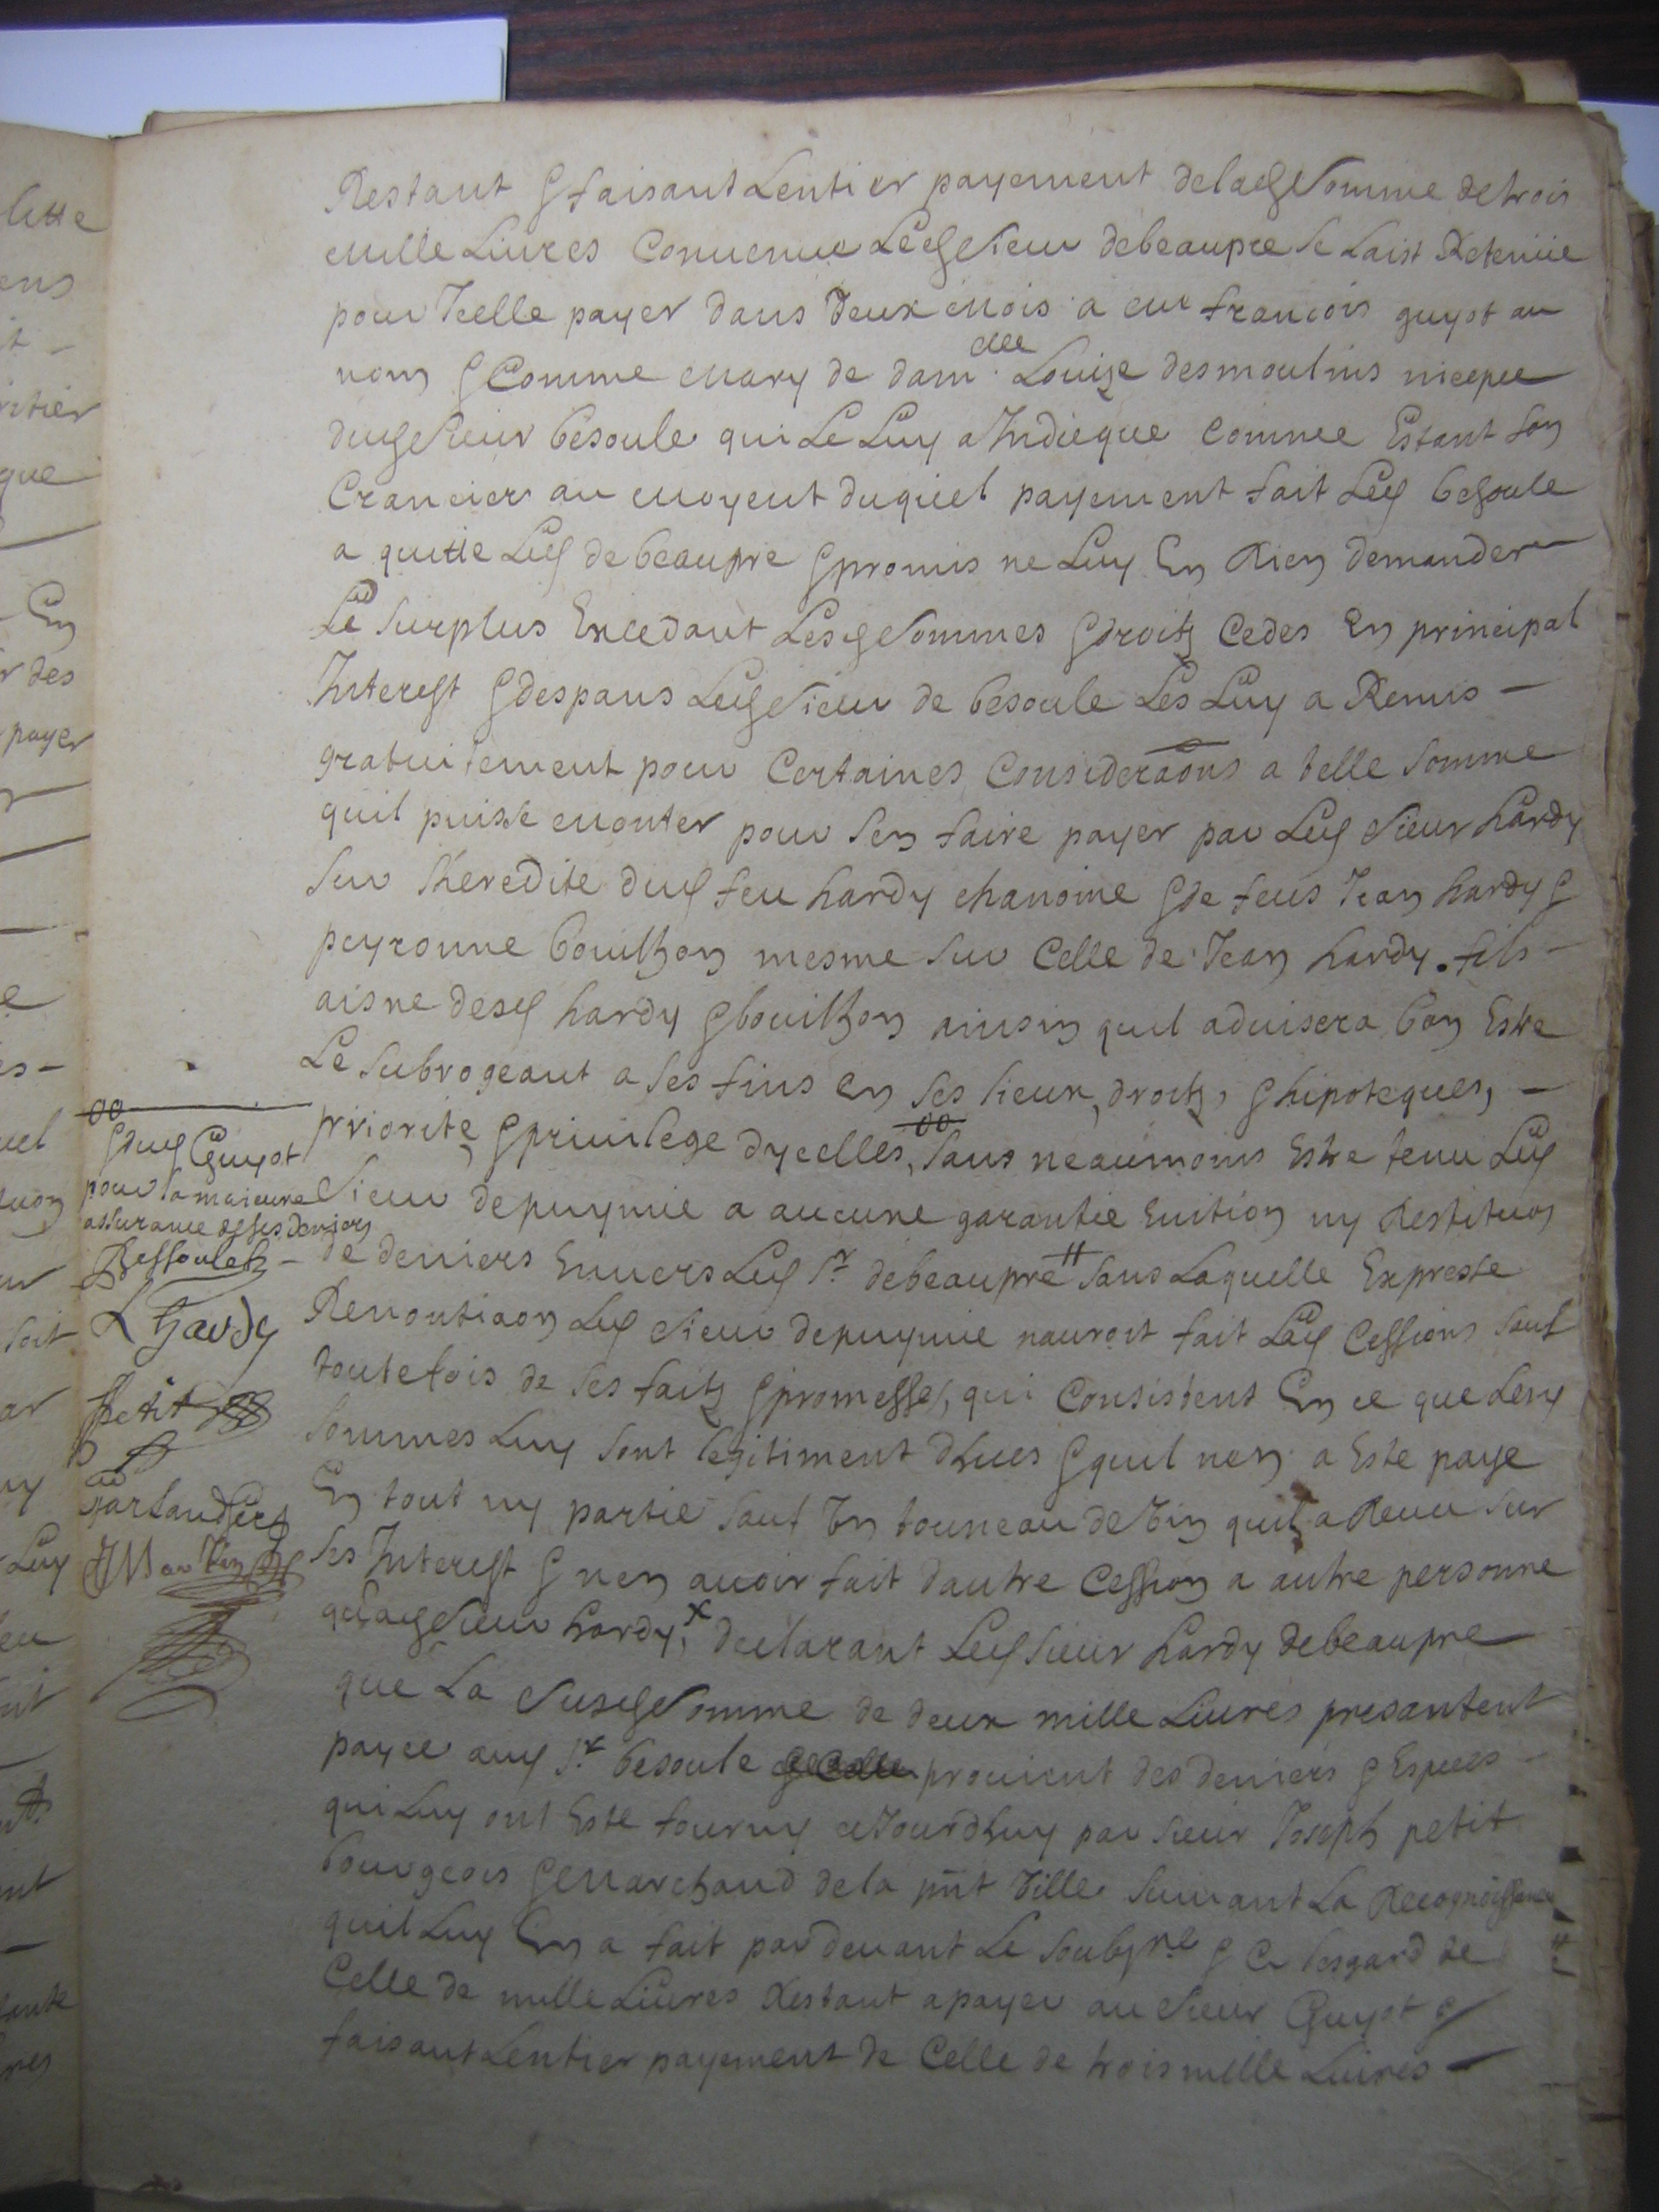 Restant & faisant Lentier payement delad somme de trois
mille Livres Convenue Led sieur debeaupre se Laist Retenüe
pour Icelle payer dans deux mois a françois guyot au
nom & Comme mary de dam.elle Louize desmoulins niepce
dud sieur besoule qui Le Luy a Indicque comme Estant son
Crancier au moyent duquel payement fait Led besoule
a quitte Led de beaupre & promis ne Luy En Rien demander
Le surplus Excedant Lesd sommes & droitz cedes En principal
Interest & despans Led sieur de besoule Les Luy a Remis -
gratuitement pour Certaines Consideraons a telle somme
quil puisse monter pour sen faire payer par Led sieur hardy
sur lheredite dud feu hardy chanoine & de feus Jean hardy &
peyronne bouilhon mesme sur Celle de Jean hardy fils -
aisne desd hardy & bouilhon ainsin quil advisera bon Estre
Le subrogeant a ses fins en ses lieux, droitz, & hipoteques, -
priorite, & privilege dycelles, oo sans neaumoins Estre tenu Led
sieur depuymie a aucune garantie Evition ny Restituon
de deniers Envers Led Sr debeaupre # sans Laquelle Expresse
Renontiaon Led sieur depuymie nauroit fait Lad Cession sauf
toutefois de ses faitz & promesses, qui Consistent En ce que Lesd
sommes Luy sont legitiment dhues & quil nen a Este paye
En tout ny partie sauf Un tonneau de Vin quil a Receu sur
ses Interest & nen avoir fait dautre Cession a autre personne
quaud sieur hardy, x declarant Led sieur hardy debeaupre
que La susd somme de deux mille Livres presantent
payee aud Sr besoule provient des deniers & Espees
qui Luy ont Este fourny cejourdhuy par sieur Joseph petit
bourgeois & marchand dela pnt Ville suivant La Recognoissance
quil Luy En a fait pardevant Le soubzne & a lesgard de
Celle de mille Livres Restant a payer au sieur Guyot &
faisant Lentier payement de Celle de trois mille Livres -
oo
& dud Guyot
pour la majeure
assurance de ses deniers
Bessoulek
L Hardy
Petit
JMartin